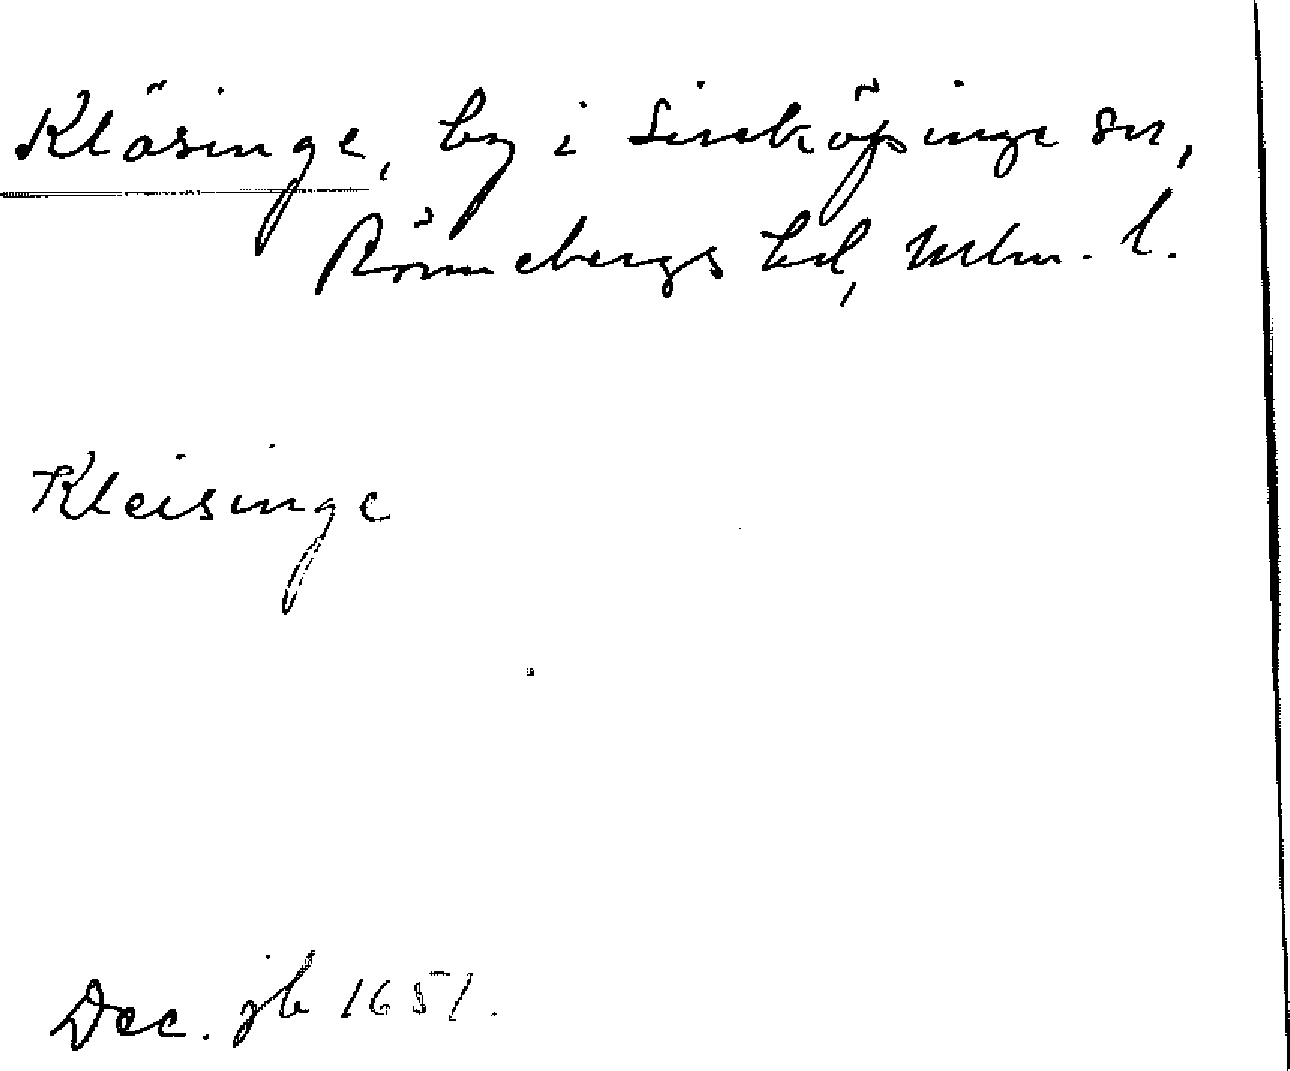 Kläsinge, by i Simköpinge sn,
Rönnebergs hd, Mlm. l.
Kleisinge
Dec. jb 1651.